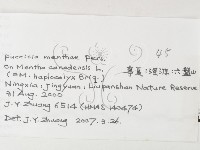 45
Puccinia menthae Pers.
On Mentha canadensis L.
(=M. haplocalyx Briq.)
宁夏:泾源:六盘山
Ningxia: Jingyuan: Liupanshan Nature Reserve
31 Aug. 2000
J.Y. Zhuang 6514 (HMAS 140474)
Det. J.Y. Zhuang 2007. 3. 26.